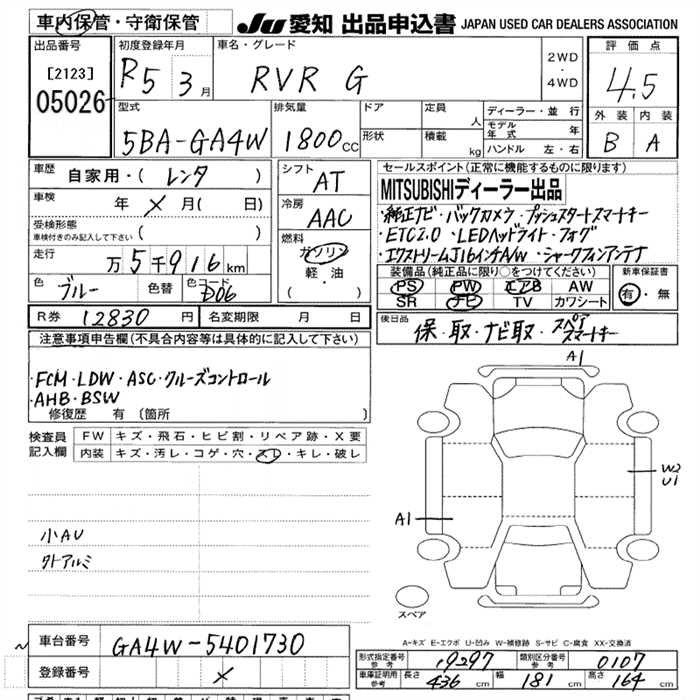 車内保管・守衛保管
JU 愛知 出品申込書 JAPAN USED CAR DEALERS ASSOCIATION
出品番号
[2123]
05026
初度登録年月
R5 3月
車名・グレード
RVR G
2WD
・
4WD
評価点
4.5
外装 内装
B A
型式
5BA-GA4W
排気量
1800cc
ドア
形状
定員 人
積載 kg
ディーラー・並行
モデル年式 年
ハンドル 左・右
車歴 自家用・( レンタ )
車検 年 × 月( 日)
受検形態
車検付きのみ記入して下さい ( )
走行 万5千916km
色 ブルー 色替 色コード D06
シフト
AT
冷房
AAC
燃料
ガソリン
軽・油
( )
セールスポイント(正常に機能するものに限ります)
MITSUBISHIディーラー出品
・純正ナビ・バックカメラ・プッシュスタートスマートキー
・ETC2.0 ・LEDヘッドライト・フォグ
・エクストリームJ16インチAW ・シャークフィンアンテナ
装備品(純正品に限り○をつけてください)
PS PW エアB AW
SR ナビ TV カワシート
新車保証書
有・無
R券 12830円 名変期限 月 日
後日品
保・取・ナビ取・スペアスマートキー
注意事項申告欄(不具合内容等は具体的に記入して下さい)
・FCM・LDW・ASC・クルーズコントロール
・AHB・BSW
修復歴 有 〔箇所 〕
検査員記入欄
FW キズ・飛石・ヒビ割・リペア跡・X要
内装 キズ・汚レ・コゲ・穴・スレ・キレ・破レ
小AU
外アルミ
A1
W2
U1
A1
スペア
A-キズ E-エクボ U-凹み W-補修跡 S-サビ C-腐食 XX-交換済
車台番号 GA4W-5401730
登録番号 ×
形式指定番号 参考 19297 類別区分番号 参考 0107
車庫証明用 参考 長さ 436cm 幅 181cm 高さ 164cm